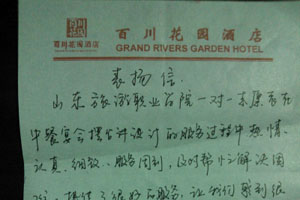 百川花园酒店
百川花园酒店
GRAND RIVERS GARDEN HOTEL
表扬信
山东旅游职业学院一对一
中餐宴会摆台讲设计的服务过程中热情、
认真、细致、服务周到，及时帮忙解决困
服务，让我们感到很